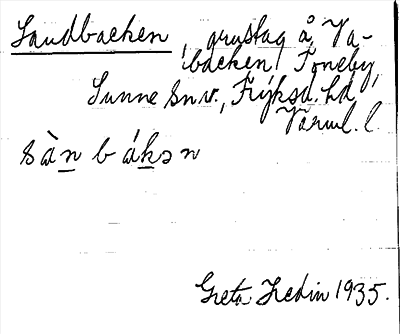 Sandbacken, grustag å Va-
backen, Toneby,
Sunne snv., Fryksd. hd,
Värml. l.
sàn bákən
Greta Hedin 1935.